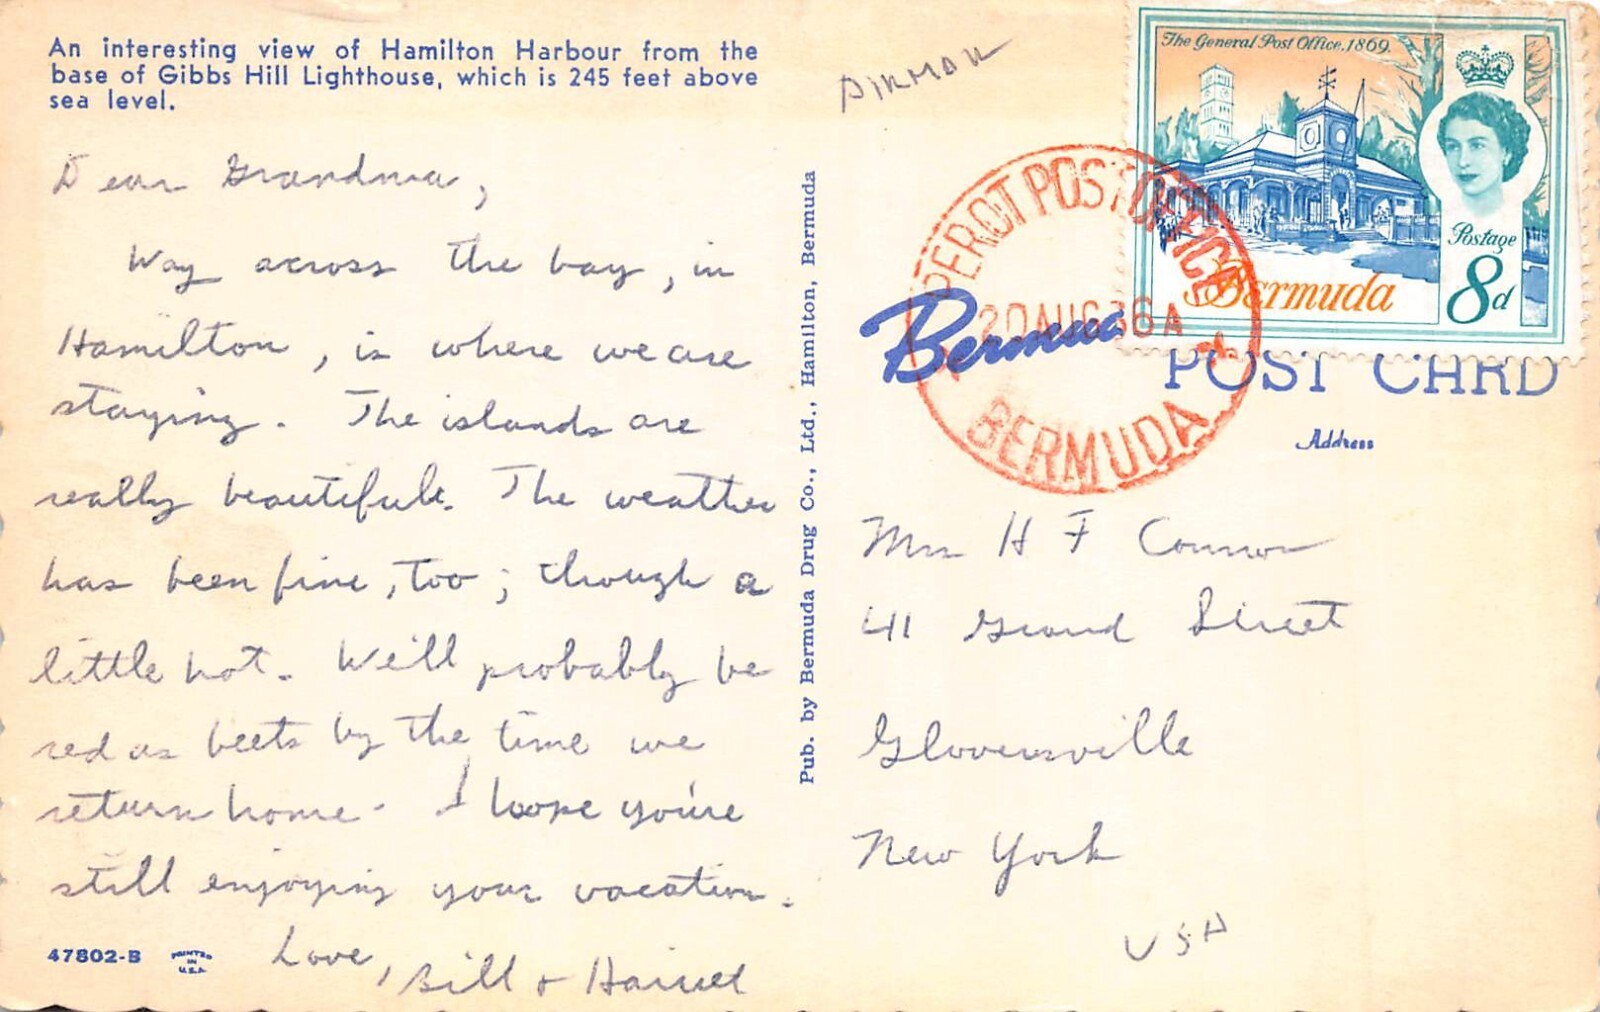 An interesting view of Hamilton Harbour from the
base of Gibbs Hill Lighthouse, which is 245 feet above
sea level.
Dear Grandma,
Way across the bay, in
Hamilton, is where we are
staying. The islands are
really beautiful. The weather
has been fine, too; though a
little hot. We'll probably be
red as beets by the time we
return home. I hope you're
still enjoying your vacation.
Love,
Bill + Harriet
47802-B
PRINTED
IN
U.S.A.
Pub. by Bermuda Drug Co., Ltd., Hamilton, Bermuda
AIRMAIL
The General Post Office, 1869.
Postage
8d
Bermuda
PEROT POST OFFICE
20 AUG 66 A
BERMUDA
Bermuda
POST CARD
Address
Mrs H F Connor
411 Grand Street
Gloversville
New York
USA